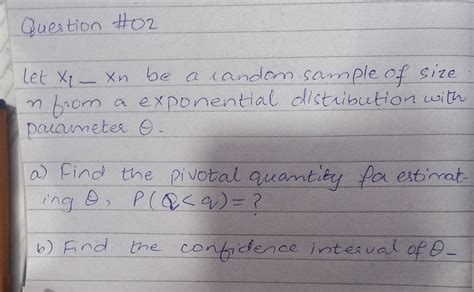 Question #02
let x1 _ xn be a random sample of size
n from a exponential distribution with
parameter θ.
a) Find the pivotal quantity for estimat-
ing θ, P(Q<q)=?
b) Find the confidence interval of θ_